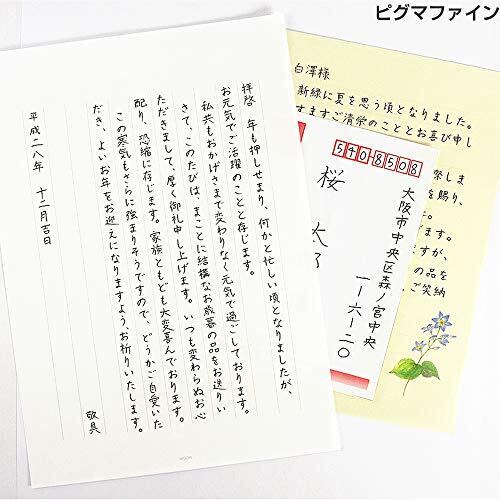 ピグマファイン
拝啓　年も押しせまり、何かと忙しい頃となりましたが、
お元気でご活躍のことと存じます。
私共もおかげさまで変わりなく元気で過ごしております。
さて、このたびは、まことに結構なお歳暮の品をお送りい
ただきまして、厚く御礼申し上げます。いつも変わらぬお心
配り、恐縮に存じます。家族ともども大変喜んでおります。
この寒気もさらに強まりそうですので、どうかご自愛いた
だき、よいお年をお迎えになりますよう、お祈りいたします。
敬具
平成二八年　十二月吉日
白澤様
新緑に夏を思う頃となりました。
すますご清学のこととお喜び申し
祭しま
を賜り、
ます。
ますが、
の品を
ご笑納
540-8508
大阪市中央区森ノ宮中央
一-六-二〇
桜
太